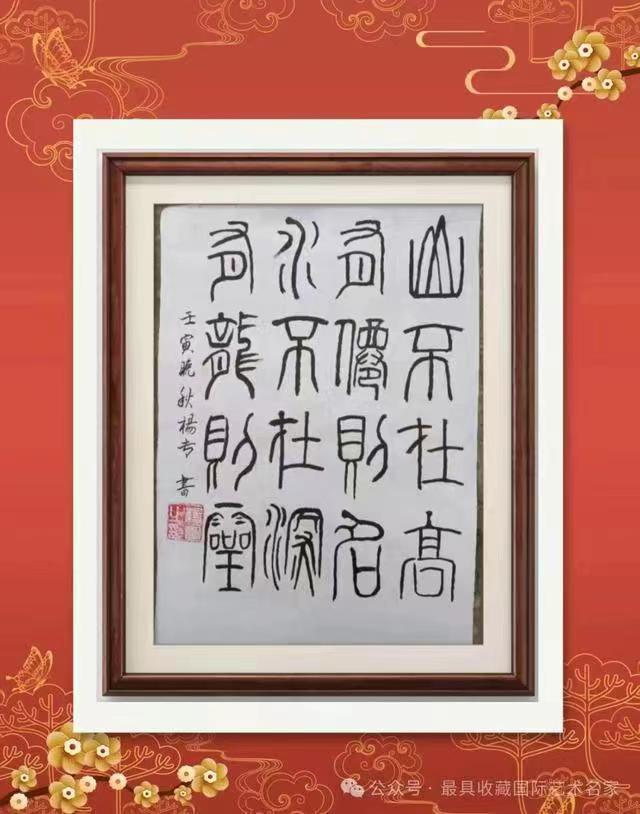 山不在高
有僊則名
水不在深
有龍則靈
壬寅晚秋楊
書
公众号 · 最具收藏国际艺术名家